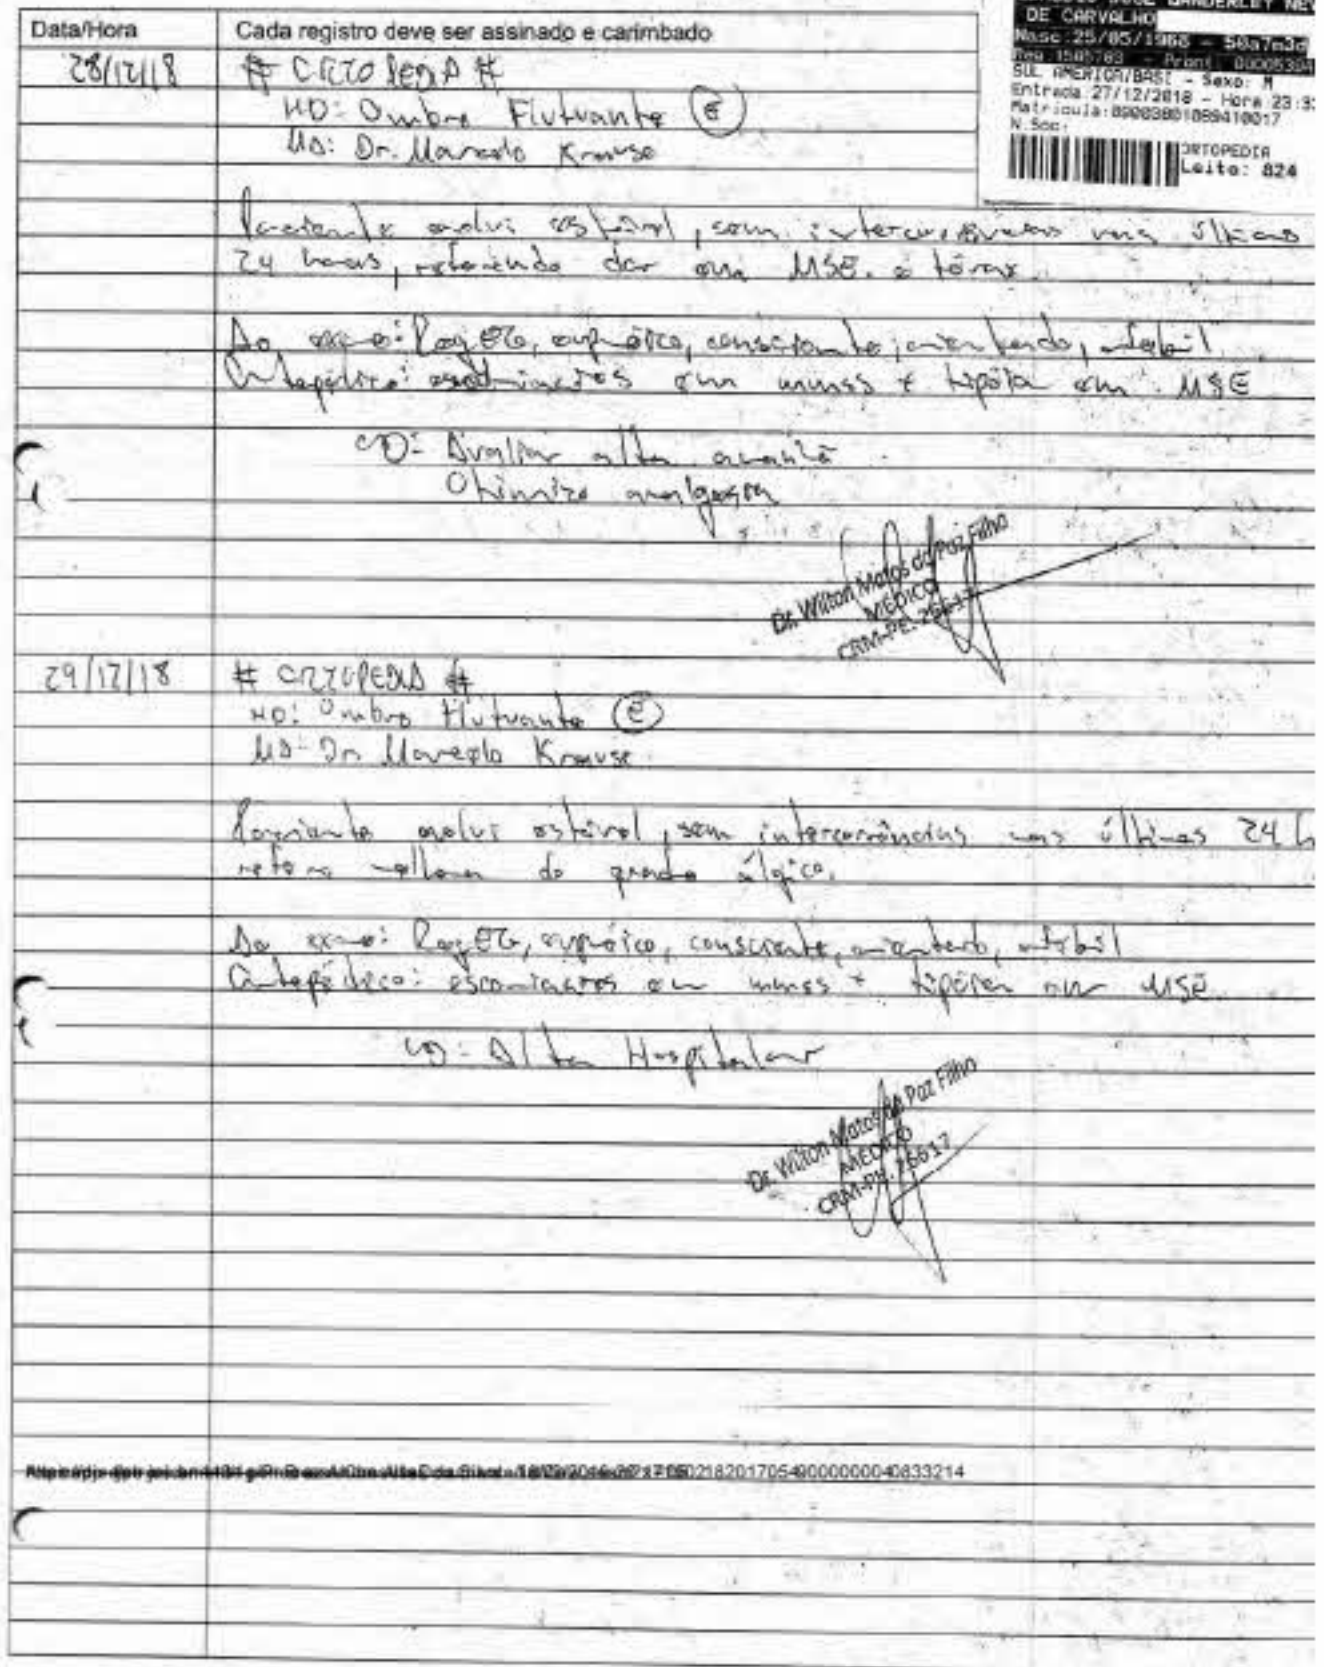 WANDERLEY NEV
DE CARVALHO
Nasc:25/05/1968 - 50a7m3d
SUL AMERICA/BASI - Sexo: M
Entrada 27/12/2018 - Hora 23:3
Matricula:
N.Soc:
ORTOPEDIA
Leito: 824
Data/Hora
Cada registro deve ser assinado e carimbado
28/12/18
# ORTOPEDIA #
HD: Ombro Flutuante (E)
MA: Dr. Marcelo Krause
Paciente evolui estável, sem intercorrências nas últimas
24 horas, referindo dor em MSE. e tórax.
Ao exame: Reg EG, eupneico, consciente, orientado, afebril
Ortopédico: escoriações em mmss + tipóia em MSE
CD: Avaliar alta amanhã
Otimizo analgesia
Dr. Wilton Matos da Paz Filho
MÉDICO
CRM-PE. 26617
29/12/18
# ORTOPEDIA #
HD: Ombro Flutuante (E)
MA: Dr. Marcelo Krause
Paciente evolui estável, sem intercorrências nas últimas 24 h
refere melhora do quadro álgico.
Ao exame: Reg EG, eupneico, consciente, orientado, afebril
Ortopédico: escoriações em mmss + tipóia em MSE
CD: Alta Hospitalar
Dr. Wilton Matos da Paz Filho
MÉDICO
CRM-PE. 26617